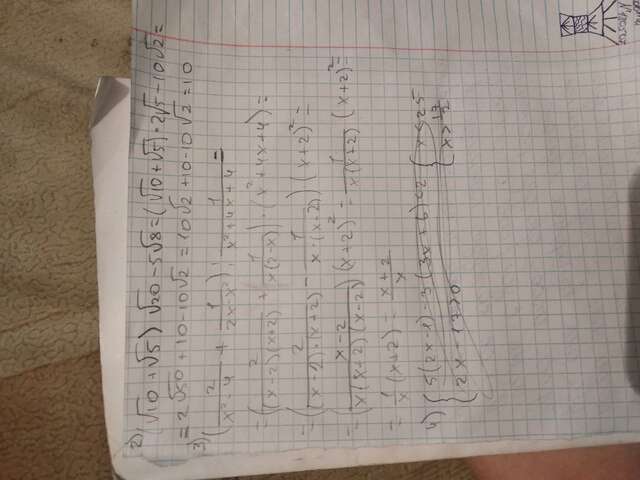 2) (√10 + √5) √20 - 5√8 = (√10 + √5) · 2√5 - 10√2 =
= 2√50 + 10 - 10√2 = 10√2 + 10 - 10√2 = 10
3) (2/(x² - 4) + 1/(2x - x²)) : 1/(x² + 4x + 4) =
= (2/((x - 2)(x + 2)) + 1/(x(2 - x))) · (x² + 4x + 4) =
= (2/((x - 2)·(x + 2)) - 1/(x·(x - 2))) (x + 2)² =
= (x - 2)/(x(x + 2)(x - 2)) (x + 2)² = 1/(x(x + 2)) (x + 2)² =
= 1/x (x + 2) = (x + 2)/x
4) { 5(2x - 1) - 3(3x + 6) < 2 { x < 25
{ 2x - 17 > 0 { x > 17/2